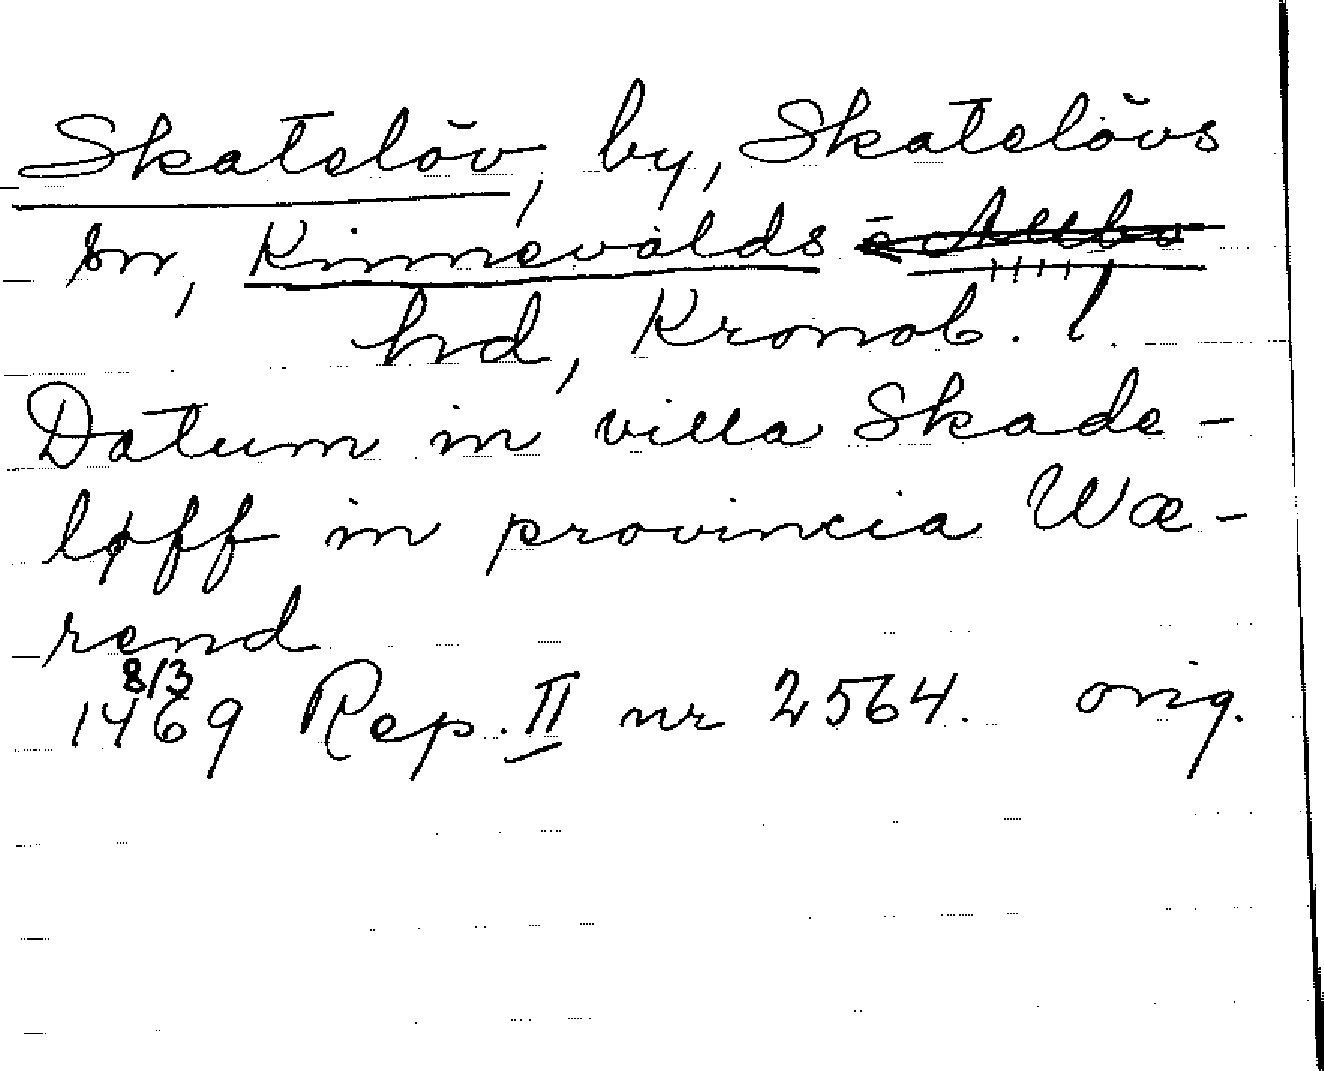 Skatelöv, by, Skatelövs
sn, Kinnevalds Allbo
hd, Kronob. l.
Datum in villa Skade-
løff in provincia Wæ-
rend
8/3
1469 Rep. II nr 2564. orig.